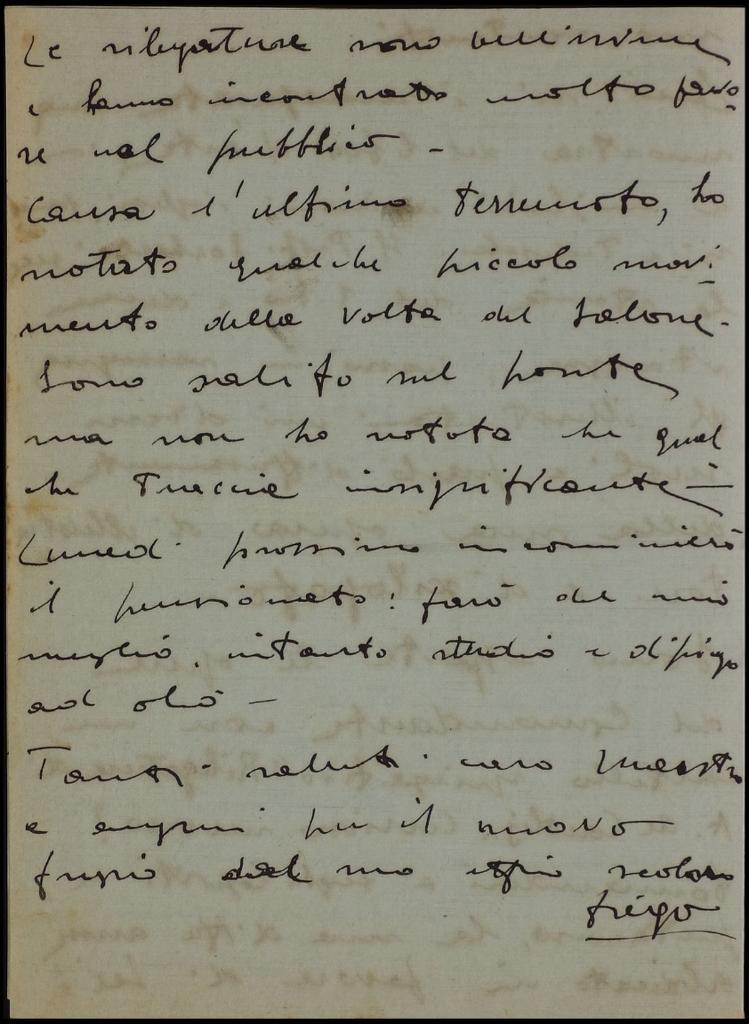 Le rilegature sono bellissime
e hanno incontrato molto favo-
re nel pubblico -
Causa l'ultimo terremoto, ho
notato qualche piccolo movi-
mento della volta del salone.
Sono salito sul ponte
ma non ho notato che qual
che traccia insignificante -
Lunedì prossimo incomincierò
il pensionato: farò del mio
meglio, intanto studio e dipingo
ad olio -
Tanti saluti caro Maestro
e auguri per il nuovo
fregio dal suo scolaro